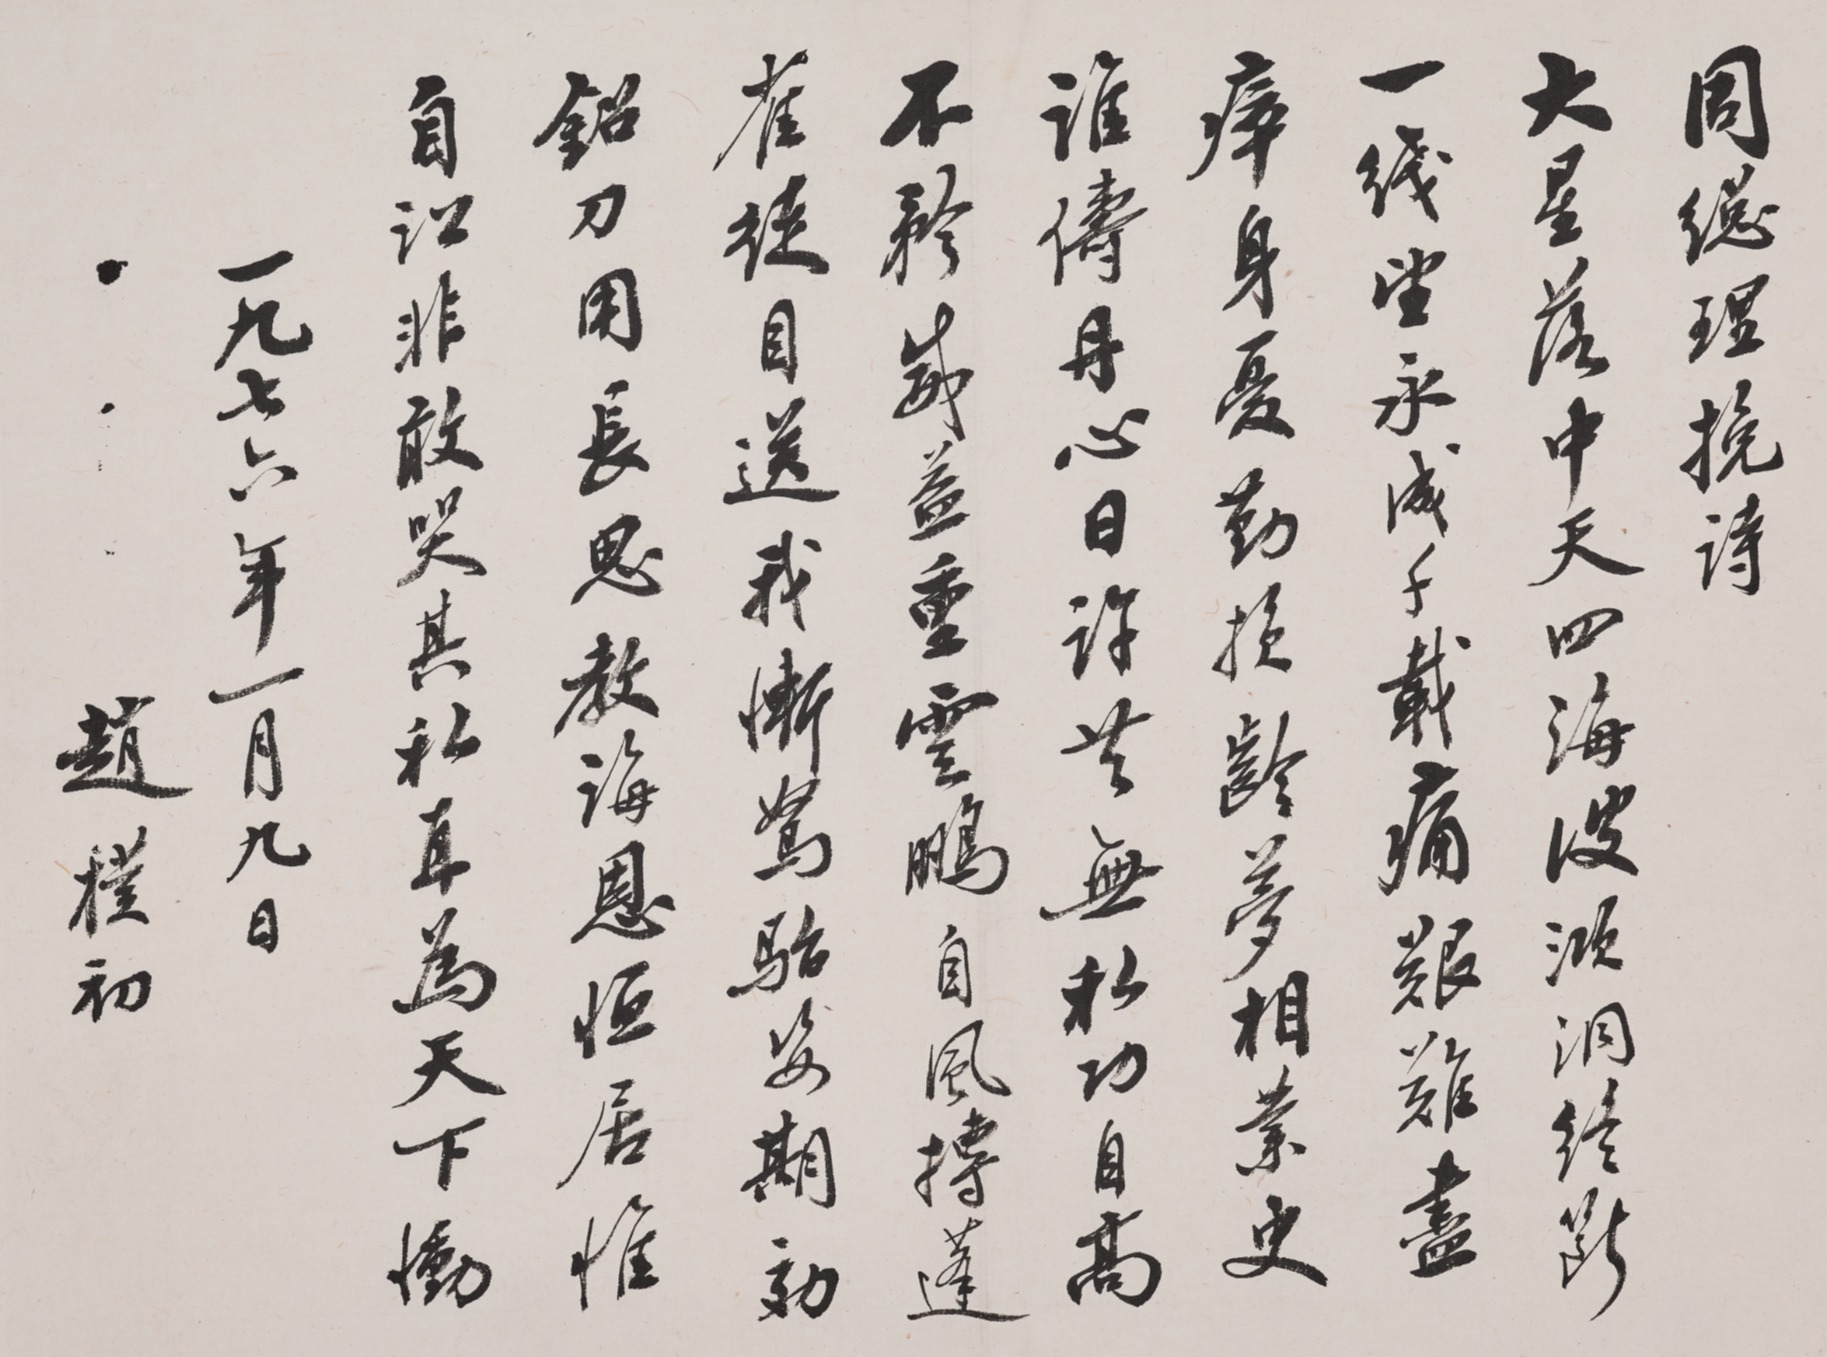 周總理挽詩
大星落中天四海波澒洞終斷
一线望永成千載痛艱難盡
瘁身憂勤損齡夢相業史
誰儔丹心日許共無私功自高
不矜威益重雲鵬自風摶蓬
雀徒目送我慚駑駘姿期效
鉛刀用長思教誨恩恒居惟
自訟非敢哭其私直為天下慟
一九七六年一月九日
趙樸初